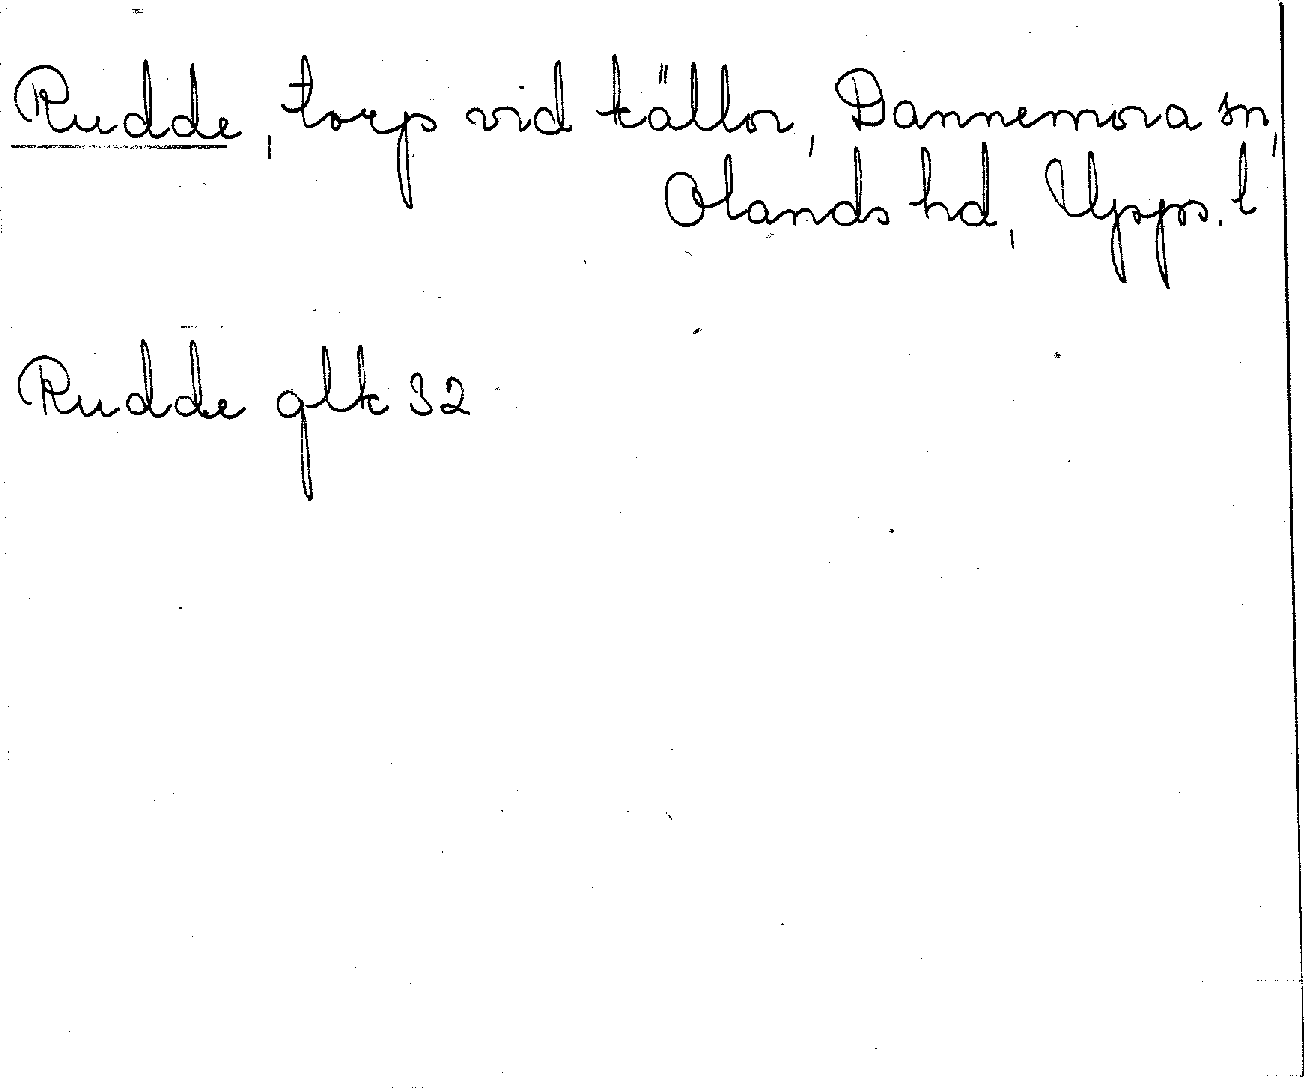 Rudde, torp vid källor, Dannemora sn,
Olands hd, Upps. l
Rudde glk 32